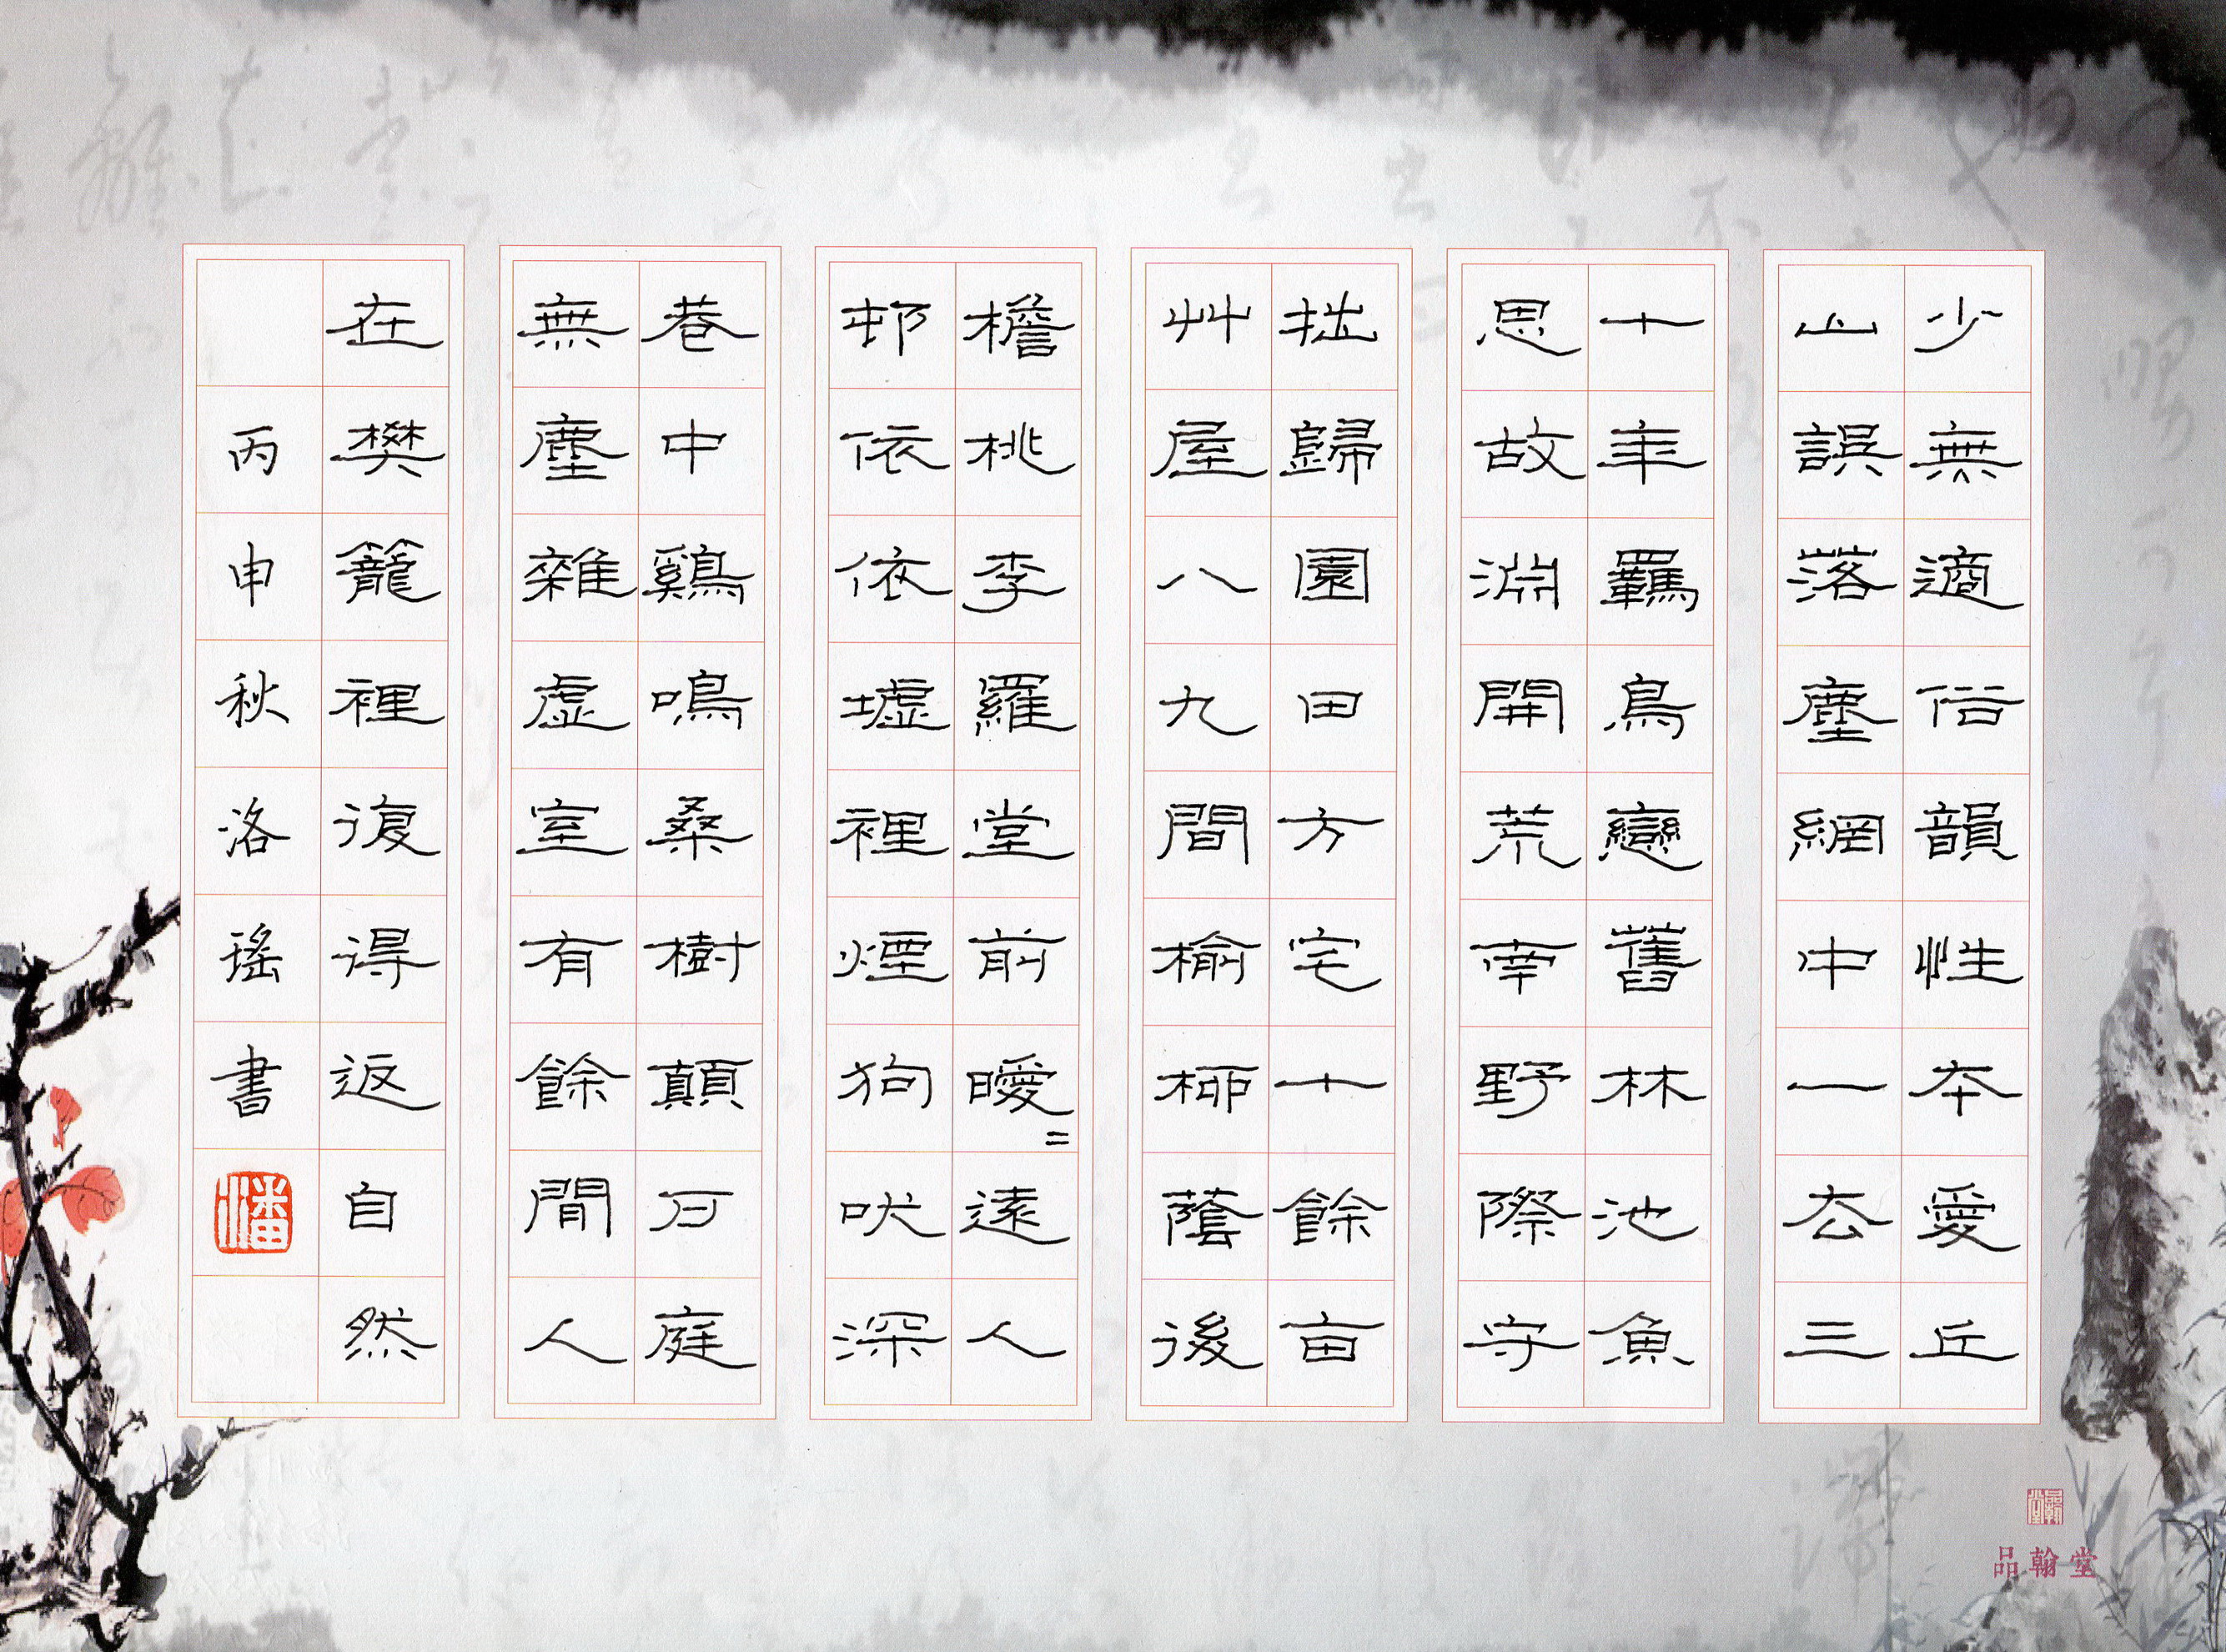 少無適俗韻性本愛丘
山誤落塵網中一去三
十年羈鳥戀舊林池魚
思故淵開荒南野際守
拙歸園田方宅十餘亩
艸屋八九間榆柳蔭後
檐桃李羅堂前曖=遠人
邨依依墟裡煙狗吠深
巷中鷄鳴桑樹顛戶庭
無塵雜虛室有餘閒久
在樊籠裡復得返自然
丙申秋洛瑤書
潘
品翰堂